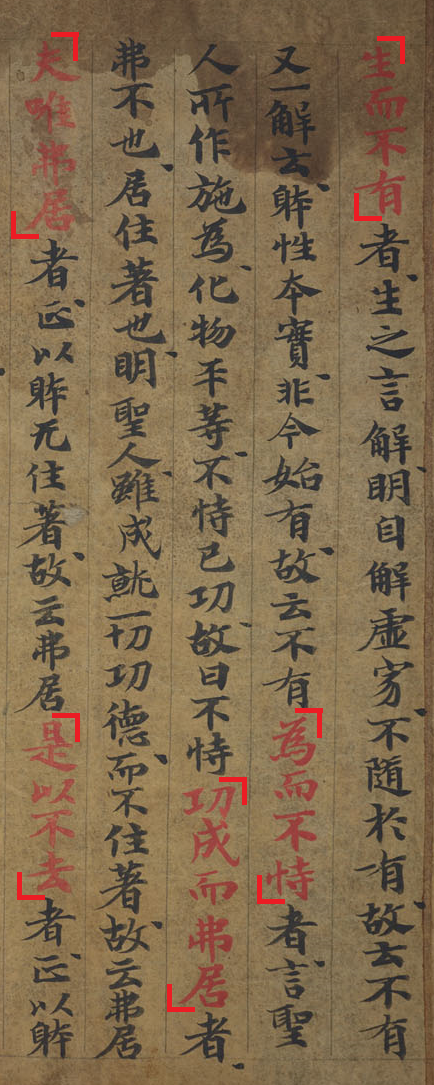 生而不有者生之言解明自解虛寂不隨於有故云不有
又一解云躰性夲實非今始有故云不有為而不恃者言聖
人所作施為化物平等不恃已功故曰不恃功成而弗居者
弗不也居住著也明聖人雖成就一切功德而不住著故云弗居
夫唯弗居者正以躰无住著故云弗居是以不去者正以躰